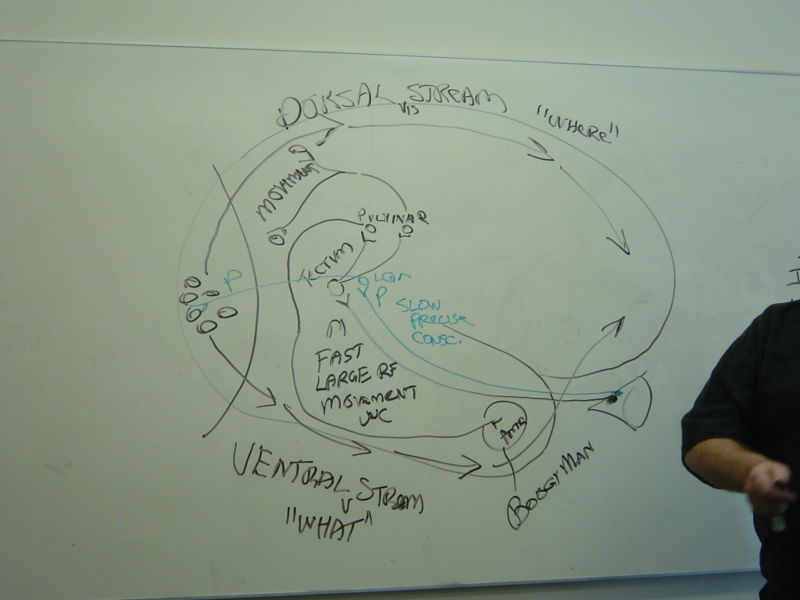 DORSAL STREAM
"WHERE"
MOVEMENT
PULVINAR
TECTUM
P
LGN
P
SLOW
PRECISE
CONSC.
M
FAST
LARGE RF
MOVEMENT
UNC
AMG
BOOGYMAN
VENTRAL STREAM
"WHAT"